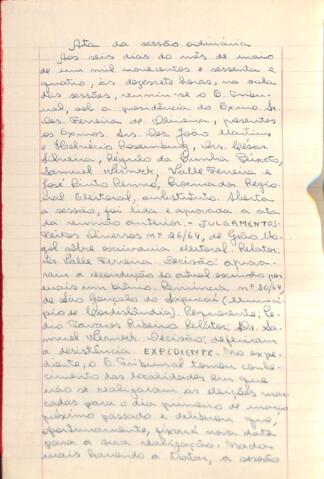 Ata da sessão ordinária
Aos seis dias do mês de maio
de um mil novecentos e sessenta e
quatro, às dezoito horas, na sala
das sessões, reuniu-se o E. Tribu-
nal, sob a presidência do Exmo. Sr.
Des. Ferreira de Oliveira, presentes
os Exmos. Srs. Des. João Martins
e Helvécio Rosenburg, Drs. César
Silveira, Régulo da Cunha Peixoto,
Samuel Werneck, Valle Ferreira e
José Pinto Renno, Procurador Regio-
nal Eleitoral, substituto. Aberta
a sessão, foi lida e aprovada a ata
da reunião anterior. - JULGAMENTOS:
Feitos Diversos nº 26/64, de Grão Mo-
gol sôbre escrivania eleitoral. Relator:
Dr. Valle Ferreira. Decisão: aprova-
ram a recondução do atual escrivão por
mais um biênio. Renúncia nº 30/64,
de São Gonçalo do Sapucaí (Municí-
pio de Cordislândia). Requerente: Pe-
dro Tavares Ribeiro. Relator: Dr. Sa-
muel Werneck. Decisão: deferiram
a desistência. EXPEDIENTE. No expe-
diente, o E. Tribunal tomou conhe-
cimento das localidades em que
não se realizaram as eleições mar-
cadas para o dia primeiro de março
próximo passado e deliberou que,
oportunamente, fixará nova data
para a sua realização. Nada
mais havendo a tratar, a sessão